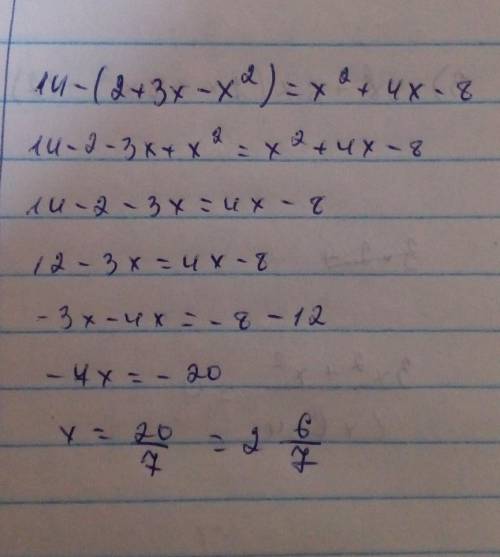 14-(2+3x-x²)=x²+4x-8
14-2-3x+x²=x²+4x-8
14-2-3x=4x-8
12-3x=4x-8
-3x-4x=-8-12
-7x=-20
x=20/7=2 6/7